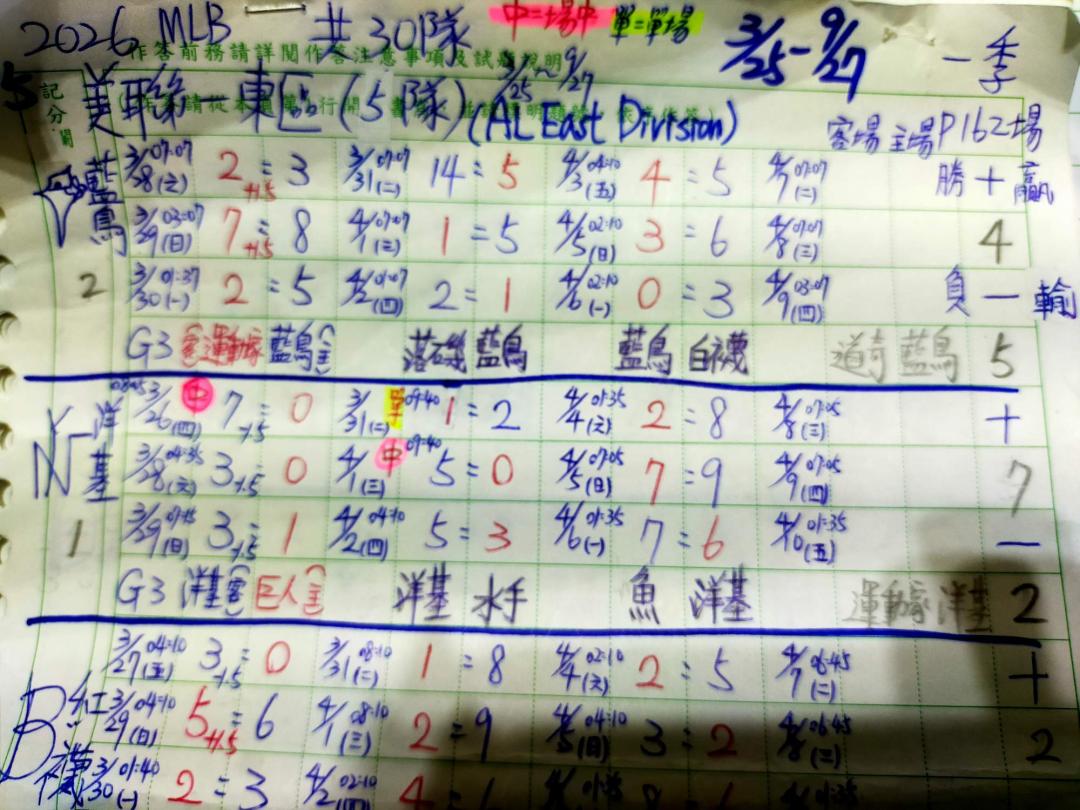 2026 MLB 共30隊 中=場中 單=單場 3/25-9/27 一季
作答前務請詳閱作答注意事項及試題說明
5 美聯 — 東區 (5隊) 3/25~9/27 (AL East Division) 客場 主場 P162場
記分欄
藍鳥 3/28 07:07 (六) 2 +1.5 : 3 3/31 07:07 (二) 14 = 5 4/3 04:10 (五) 4 = 5 4/7 07:07 (二) 勝 + 贏
3/29 03:07 (日) 7 +1.5 : 8 4/1 07:07 (三) 1 = 5 4/5 02:10 (日) 3 = 6 4/8 07:07 (三) 4
2 3/30 01:37 (一) 2 = 5 4/2 01:07 (四) 2 = 1 4/6 02:10 (一) 0 = 3 4/9 03:07 (四) 負 — 輸
G3 (客)運動家 藍鳥(主) 落磯 藍鳥 藍鳥 白襪 道奇 藍鳥 5
NY 洋基 08:05 3/26 (四) 中 7 +1.5 : 0 3/31 (二) 單 09:40 1 = 2 4/4 01:35 (六) 2 = 8 4/8 07:05 (三) +
3/28 04:35 (六) 3 +1.5 : 0 4/1 (三) 中 09:40 5 = 0 4/5 07:05 (日) 7 = 9 4/9 07:05 (四) 7
1 3/29 07:15 (日) 3 +1.5 : 1 4/2 04:10 (四) 5 = 3 4/6 01:35 (一) 7 : 6 4/10 01:35 (五) —
G3 洋基(客) 巨人(主) 洋基 水手 魚 洋基 運動家 洋基 2
3/27 04:10 (五) 3 +1.5 : 0 3/31 08:10 (二) 1 = 8 4/4 02:10 (六) 2 = 5 4/7 06:45 (二) +
B 紅襪 3/29 04:10 (日) 5 +1.5 = 6 4/1 08:10 (三) 2 = 9 4/5 04:10 (日) 3 = 2 4/8 06:45 (三) 2
3/30 01:40 (一) 2 = 3 4/2 02:10 (四) 4